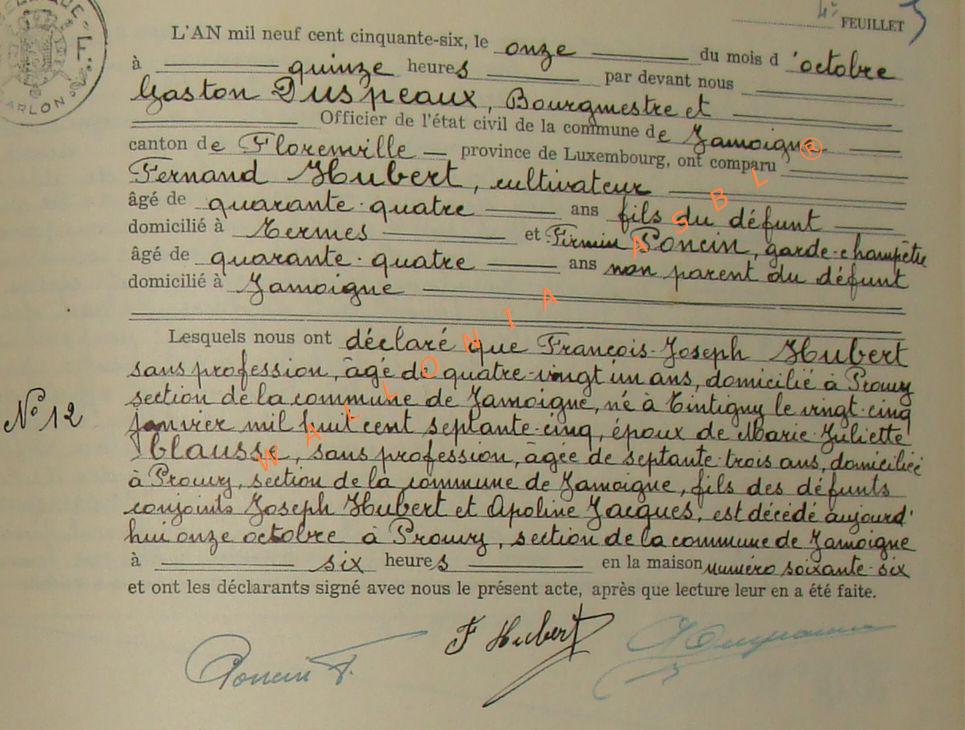 4e FEUILLET 5
L'AN mil neuf cent cinquante-six, le onze du mois d'octobre
à quinze heures par devant nous
Gaston Puspeaux, Bourgmestre et
Officier de l'état civil de la commune de Jamoigne
canton de Florenville province de Luxembourg, ont comparu
Fernand Hubert, cultivateur
âgé de quarante-quatre ans fils du défunt
domicilié à Termes et Firmin Poncin, garde-champêtre
âgé de quarante-quatre ans non parent du défunt
domicilié à Jamoigne
Lesquels nous ont déclaré que François-Joseph Hubert
sans profession, âgé de quatre-vingt un ans, domicilié à Prouvy
section de la commune de Jamoigne, né à Tintigny le vingt-cinq
N° 12
janvier mil huit cent septante-cinq, époux de Marie-Juliette
Blausse, sans profession, âgée de septante-trois ans, domiciliée
à Prouvy, section de la commune de Jamoigne, fils des défunts
conjoints Joseph Hubert et Apoline Jacques, est décédé aujourd'
hui onze octobre à Prouvy, section de la commune de Jamoigne
à six heures en la maison numéro soixante-six
et ont les déclarants signé avec nous le présent acte, après que lecture leur en a été faite.
Poncin F. F Hubert
ARLON
WALLONIA ASBL ®